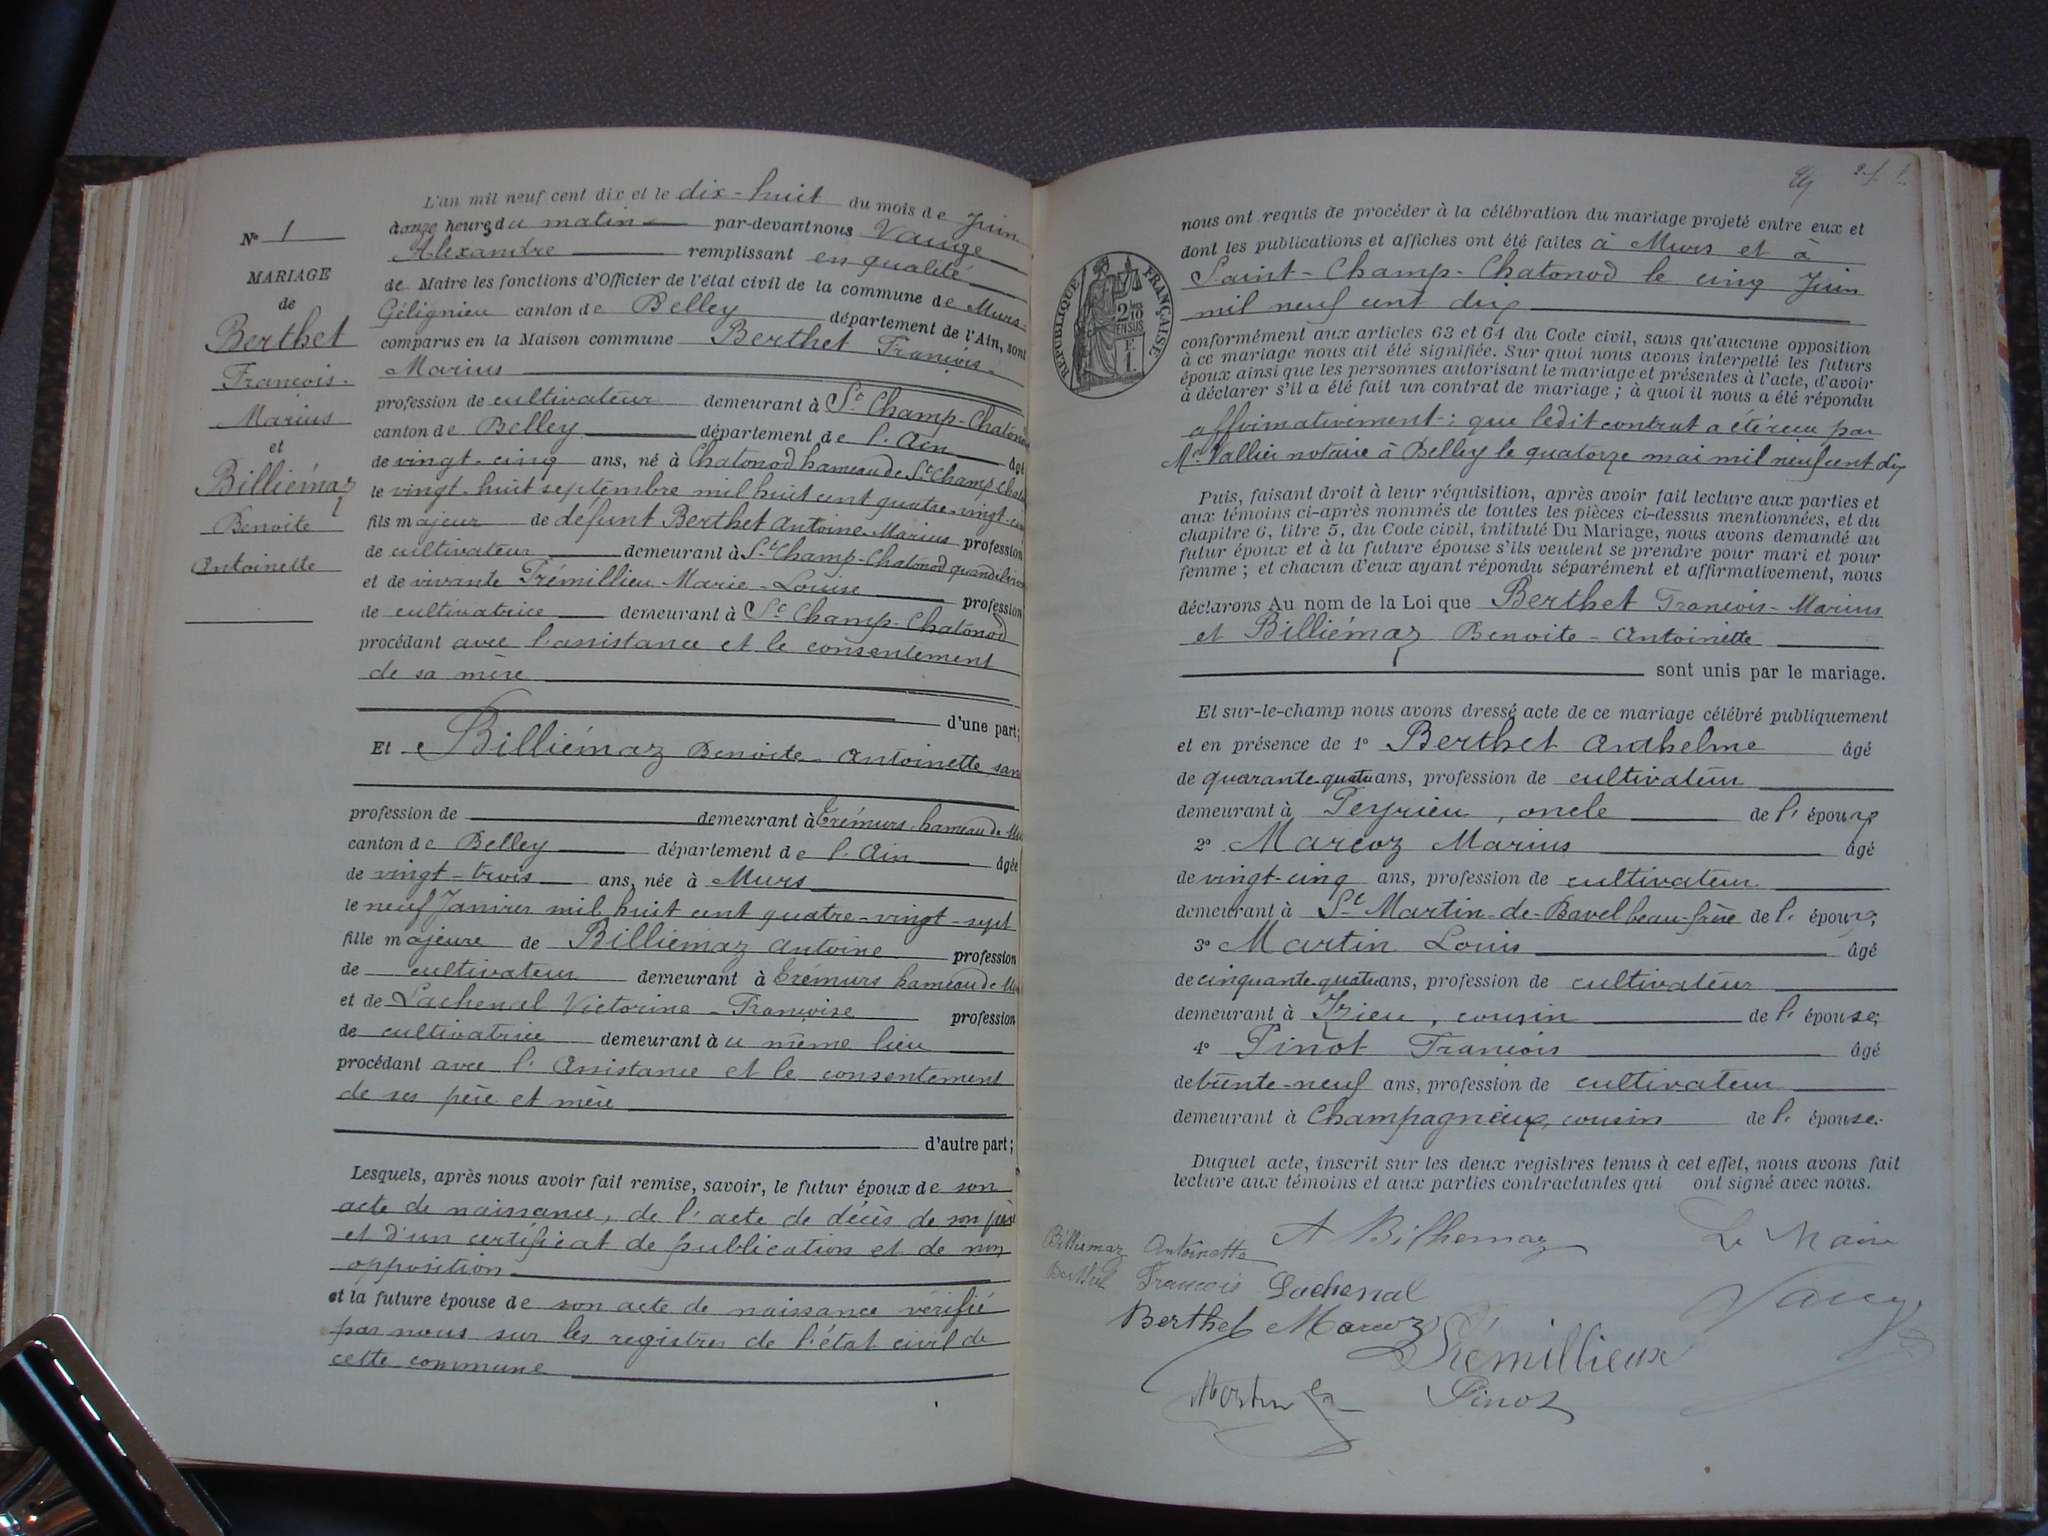 N° 1
MARIAGE
de
Berthet
François-
Marius
et
Billiémaz
Benoite
Antoinette
L'an mil neuf cent dix et le dix-huit du mois de Juin
à onze heures du matin par-devant nous Vauge
Alexandre remplissant en qualité
de Maire les fonctions d'Officier de l'état civil de la commune de Murs-
Gélignieu canton de Belley département de l'Ain, sont
comparus en la Maison commune Berthet François-
Marius
profession de cultivateur demeurant à St Champ-Chatonod
canton de Belley département de l'Ain âgé
de vingt-cinq ans, né à Chatonod hameau de St Champ Chat
le vingt-huit septembre mil huit cent quatre-vingt-
fils majeur de défunt Berthet Antoine-Marius profession
de cultivateur demeurant à St Champ-Chatonod quand il
et de vivante Trémillieu Marie-Louise profession
de cultivatrice demeurant à St Champ-Chatonod
procédant avec l'assistance et le consentement
de sa mère
d'une part;
Et Billiémaz Benoite-Antoinette sans
profession de demeurant à Crémurs hameau de Mu
canton de Belley département de l'Ain âgée
de vingt-trois ans, née à Murs
le neuf Janvier mil huit cent quatre-vingt-sept
fille majeure de Billiémaz Antoine profession
de cultivateur demeurant à Crémurs hameau de Mu
et de Lachenal Victorine-Françoise profession
de cultivatrice demeurant au même lieu
procédant avec l'assistance et le consentement
de ses père et mère
d'autre part;
Lesquels, après nous avoir fait remise, savoir, le futur époux de son
acte de naissance, de l'acte de décès de son père
et d'un certificat de publication et de non
opposition
et la future épouse de son acte de naissance vérifié
par nous sur les registres de l'état civil de
cette commune
nous ont requis de procéder à la célébration du mariage projeté entre eux et
dont les publications et affiches ont été faites à Murs et à
Saint-Champ-Chatonod le cinq Juin
mil neuf cent dix
RÉPUBLIQUE FRANÇAISE
2/10
EN SUS
F.
1.
conformément aux articles 63 et 64 du Code civil, sans qu'aucune opposition
à ce mariage nous ait été signifiée. Sur quoi nous avons interpellé les futurs
époux ainsi que les personnes autorisant le mariage et présentes à l'acte, d'avoir
à déclarer s'il a été fait un contrat de mariage; à quoi il nous a été répondu
affirmativement: que ledit contrat a été reçu par
Me Vallier notaire à Belley le quatorze mai mil neuf cent dix
Puis, faisant droit à leur réquisition, après avoir fait lecture aux parties et
aux témoins ci-après nommés de toutes les pièces ci-dessus mentionnées, et du
chapitre 6, titre 5, du Code civil, intitulé Du Mariage, nous avons demandé au
futur époux et à la future épouse s'ils veulent se prendre pour mari et pour
femme; et chacun d'eux ayant répondu séparément et affirmativement, nous
déclarons Au nom de la Loi que Berthet François-Marius
et Billiémaz Benoite-Antoinette
sont unis par le mariage.
Et sur-le-champ nous avons dressé acte de ce mariage célébré publiquement
et en présence de 1° Berthet Anthelme âgé
de quarante-quatre ans, profession de cultivateur
demeurant à Peyrieu, oncle de l'époux
2° Marcoz Marius âgé
de vingt-cinq ans, profession de cultivateur
demeurant à St Martin-de-Bavel beau-frère de l'époux;
3° Martin Louis âgé
de cinquante-quatre ans, profession de cultivateur
demeurant à Izieu, cousin de l'épouse;
4° Pinot François âgé
de trente-neuf ans, profession de cultivateur
demeurant à Champagnieux, cousin de l'épouse.
Duquel acte, inscrit sur les deux registres tenus à cet effet, nous avons fait
lecture aux témoins et aux parties contractantes qui ont signé avec nous.
Billiemaz Antoinette A Billiemaz Le Maire
Berthet François Lachenal Vauge
Berthet Marcoz Trémillieux
Martin Pinot